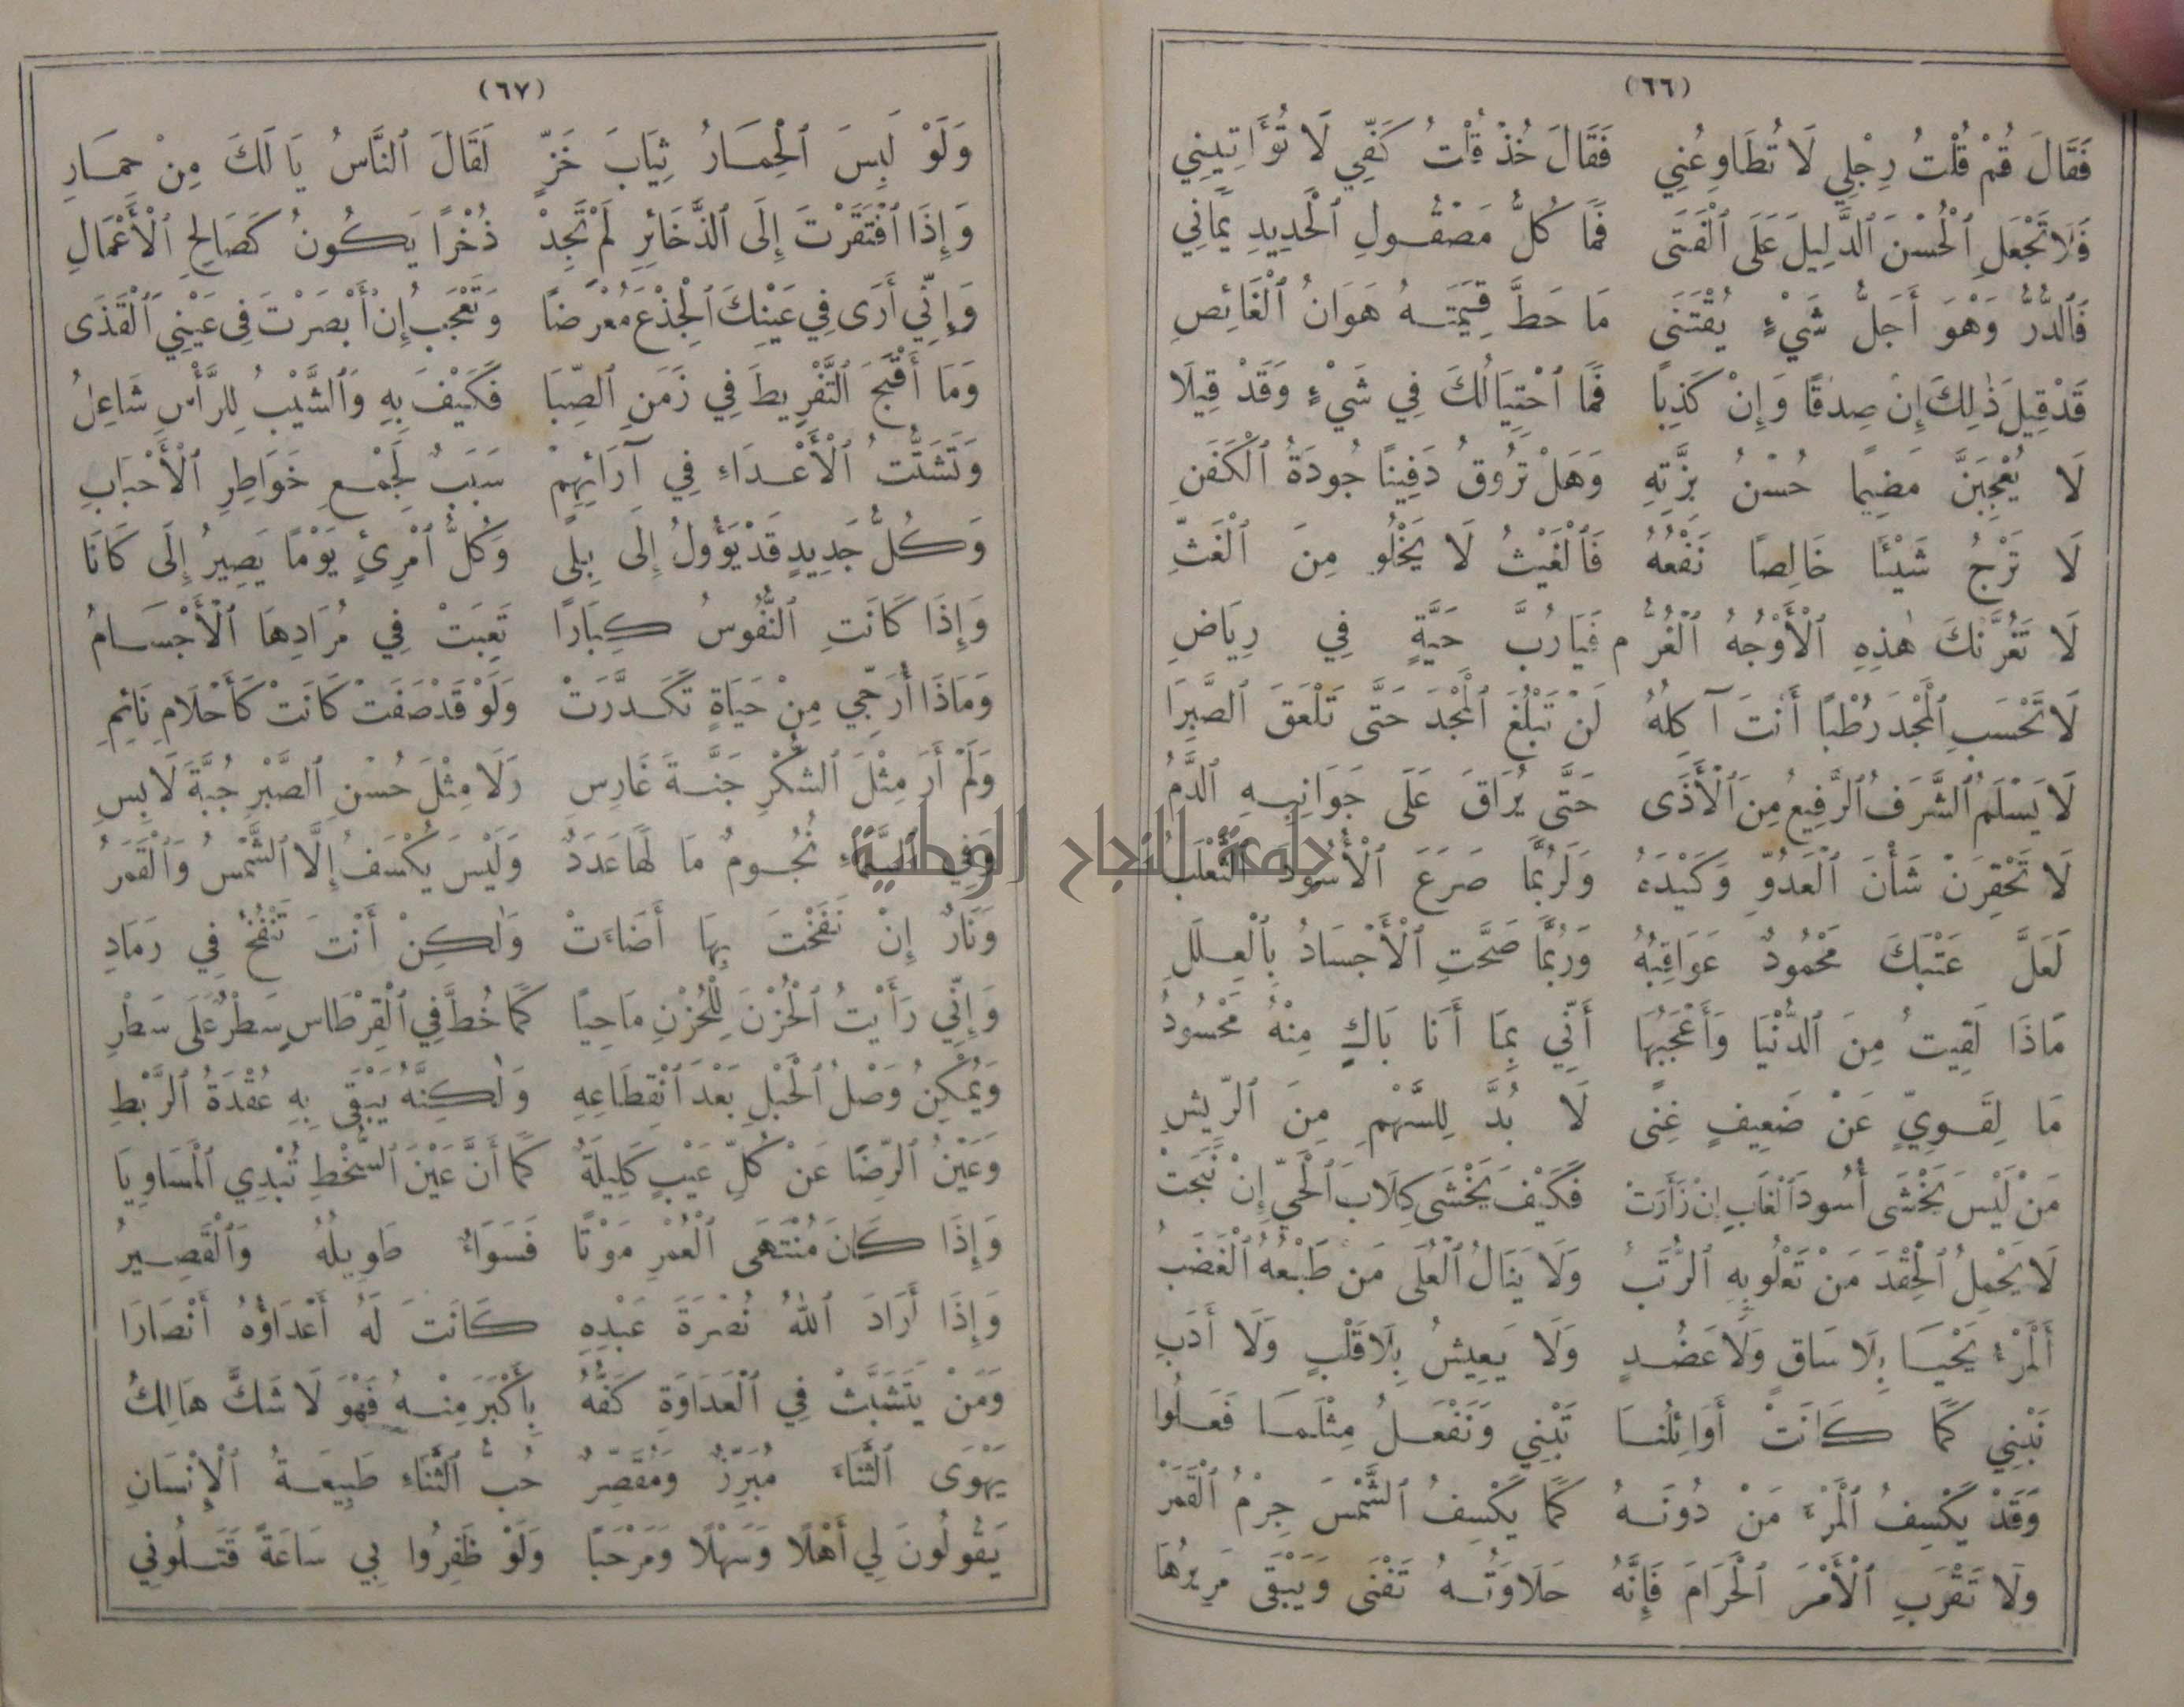 (٦٦)
فَقَالَ قُمْ قُلْتُ رِجْلِي لَا تُطَاوِعُنِي فَقَالَ خُذْ قُلْتُ كَفِّي لَا تُؤَاتِينِي
فَلَا تَجْعَلِ ٱلْحُسْنَ ٱلدَّلِيلَ عَلَى ٱلْفَتَى فَمَا كُلُّ مَصْقُولِ ٱلْحَدِيدِ يَمَانِي
فَٱلدُّرُّ وَهْوَ أَجَلُّ شَيْءٍ يُقْتَنَى مَا حَطَّ قِيمَتَهُ هَوَانُ ٱلْغَائِصِ
قَدْ قِيلَ ذٰلِكَ إِنْ صِدْقًا وَإِنْ كَذِبًا فَمَا ٱحْتِيَالُكَ فِي شَيْءٍ وَقَدْ قِيلَا
لَا يُعْجِبَنَّ مَضِيمًا حُسْنُ بِزَّتِهِ وَهَلْ تَرُوقُ دَفِينًا جُودَةُ ٱلْكَفَنِ
لَا تَرْجُ شَيْئًا خَالِصًا نَفْعُهُ فَٱلْغَيْثُ لَا يَخْلُو مِنَ ٱلْغَثِّ
لَا تَغُرَّنْكَ هٰذِهِ ٱلْأَوْجُهُ ٱلْغُرُّ م فَيَا رُبَّ حَيَّةٍ فِي رِيَاضِ
لَا تَحْسَبِ ٱلْمَجْدَ رُطْبًا أَنْتَ آكِلُهُ لَنْ تَبْلُغَ ٱلْمَجْدَ حَتَّى تَلْعَقَ ٱلصَّبِرَا
لَا يَسْلَمُ ٱلشَّرَفُ ٱلرَّفِيعُ مِنَ ٱلْأَذَى حَتَّى يُرَاقَ عَلَى جَوَانِبِهِ ٱلدَّمُ
لَا تَحْقِرَنْ شَأْنَ ٱلْعَدُوِّ وَكَيْدَهُ وَلَرُبَّمَا صَرَعَ ٱلْأُسُودَ ٱلثَّعْلَبُ
لَعَلَّ عَتْبَكَ مَحْمُودٌ عَوَاقِبُهُ وَرُبَّمَا صَحَّتِ ٱلْأَجْسَادُ بِٱلْعِلَلِ
مَاذَا لَقِيتُ مِنَ ٱلدُّنْيَا وَأَعْجَبُهَا أَنِّي بِمَا أَنَا بَاكٍ مِنْهُ مَحْسُودُ
مَا لِقَوِيٍّ عَنْ ضَعِيفٍ غِنًى لَا بُدَّ لِلسَّهْمِ مِنَ ٱلرِّيشِ
مَنْ لَيْسَ يَخْشَى أُسُودَ ٱلْغَابِ إِنْ زَأَرَتْ فَكَيْفَ يَخْشَى كِلَابَ ٱلْحَيِّ إِنْ نَبَحَتْ
لَا يَحْمِلُ ٱلْحِقْدَ مَنْ تَعْلُو بِهِ ٱلرُّتَبُ وَلَا يَنَالُ ٱلْعُلَى مَنْ طَبْعُهُ ٱلْغَضَبُ
أَلْمَرْءُ يَحْيَا بِلَا سَاقٍ وَلَا عَضُدٍ وَلَا يَعِيشُ بِلَا قَلْبٍ وَلَا أَدَبِ
نَبْنِي كَمَا كَانَتْ أَوَائِلُنَا تَبْنِي وَنَفْعَلُ مِثْلَمَا فَعَلُوا
وَقَدْ يَكْسِفُ ٱلْمَرْءَ مَنْ دُونَهُ كَمَا يَكْسِفُ ٱلشَّمْسَ جِرْمُ ٱلْقَمَرْ
وَلَا تَقْرَبِ ٱلْأَمْرَ ٱلْحَرَامَ فَإِنَّهُ حَلَاوَتُهُ تَفْنَى وَيَبْقَى مَرِيرُهَا
(٦٧)
وَلَوْ لَبِسَ ٱلْحِمَارُ ثِيَابَ خَزٍّ لَقَالَ ٱلنَّاسُ يَا لَكَ مِنْ حِمَارِ
وَإِذَا ٱفْتَقَرْتَ إِلَى ٱلذَّخَائِرِ لَمْ تَجِدْ ذُخْرًا يَكُونُ كَصَالِحِ ٱلْأَعْمَالِ
وَإِنِّي أَرَى فِي عَيْنِكَ ٱلْجِذْعَ مُعْرَضًا وَتَعْجَبُ إِنْ أَبْصَرْتَ فِي عَيْنِي ٱلْقَذَى
وَمَا أَقْبَحَ ٱلتَّفْرِيطَ فِي زَمَنِ ٱلصِّبَا فَكَيْفَ بِهِ وَٱلشَّيْبُ لِلرَّأْسِ شَاعِلُ
وَتَشَتُّتُ ٱلْأَعْدَاءِ فِي آرَائِهِمْ سَبَبٌ لِجَمْعِ خَوَاطِرِ ٱلْأَحْبَابِ
وَكُلُّ جَدِيدٍ قَدْ يَؤُولُ إِلَى بِلًى وَكُلُّ ٱمْرِئٍ يَوْمًا يَصِيرُ إِلَى كَانَا
وَإِذَا كَانَتِ ٱلنُّفُوسُ كِبَارًا تَعِبَتْ فِي مُرَادِهَا ٱلْأَجْسَامُ
وَمَاذَا أُرَجِّي مِنْ حَيَاةٍ تَكَدَّرَتْ وَلَوْ قَدْ صَفَتْ كَانَتْ كَأَحْلَامِ نَائِمِ
وَلَمْ أَرَ مِثْلَ ٱلشُّكْرِ جَنَّةَ غَارِسِ وَلَا مِثْلَ حُسْنِ ٱلصَّبْرِ جُبَّةَ لَابِسِ
وَفِي ٱلسَّمَاءِ نُجُومٌ مَا لَهَا عَدَدٌ وَلَيْسَ يُكْسَفُ إِلَّا ٱلشَّمْسُ وَٱلْقَمَرُ
وَنَارٌ إِنْ نَفَخْتَ بِهَا أَضَاءَتْ وَلٰكِنْ أَنْتَ تَنْفُخُ فِي رَمَادِ
وَإِنِّي رَأَيْتُ ٱلْحُزْنَ لِلْحُزْنِ مَاحِيًا كَمَا خُطَّ فِي ٱلْقِرْطَاسِ سَطْرٌ عَلَى سَطْرِ
وَيُمْكِنُ وَصْلُ ٱلْحَبْلِ بَعْدَ ٱنْقِطَاعِهِ وَلٰكِنَّهُ يَبْقَى بِهِ عُقْدَةُ ٱلرَّبْطِ
وَعَيْنُ ٱلرِّضَا عَنْ كُلِّ عَيْبٍ كَلِيلَةٌ كَمَا أَنَّ عَيْنَ ٱلسُّخْطِ تُبْدِي ٱلْمَسَاوِيَا
وَإِذَا كَانَ مُنْتَهَى ٱلْعُمْرِ مَوْتًا فَسَوَاءٌ طَوِيلُهُ وَٱلْقَصِيرُ
وَإِذَا أَرَادَ ٱللهُ نُصْرَةَ عَبْدِهِ كَانَتْ لَهُ أَعْدَاؤُهُ أَنْصَارَا
وَمَنْ يَتَشَبَّثْ فِي ٱلْعَدَاوَةِ كَفُّهُ بِأَكْبَرَ مِنْهُ فَهْوَ لَا شَكَّ هَالِكُ
يَهْوَى ٱلثَّنَاءَ مُبَرِّزٌ وَمُقَصِّرٌ حُبُّ ٱلثَّنَاءِ طَبِيعَةُ ٱلْإِنْسَانِ
يَقُولُونَ لِي أَهْلًا وَسَهْلًا وَمَرْحَبًا وَلَوْ ظَفِرُوا بِي سَاعَةً قَتَلُونِي
جامعة النجاح الوطنية